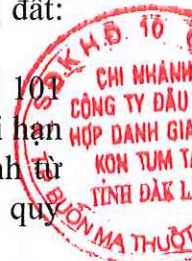 đất:
101
hạn
từ
quý
S.Đ.K.H.Đ 10
CHI NHÁNH
CÔNG TY ĐẤU
HỢP DANH GIA
KON TUM T
TỈNH ĐẮK L
BUÔN MA THUỘT